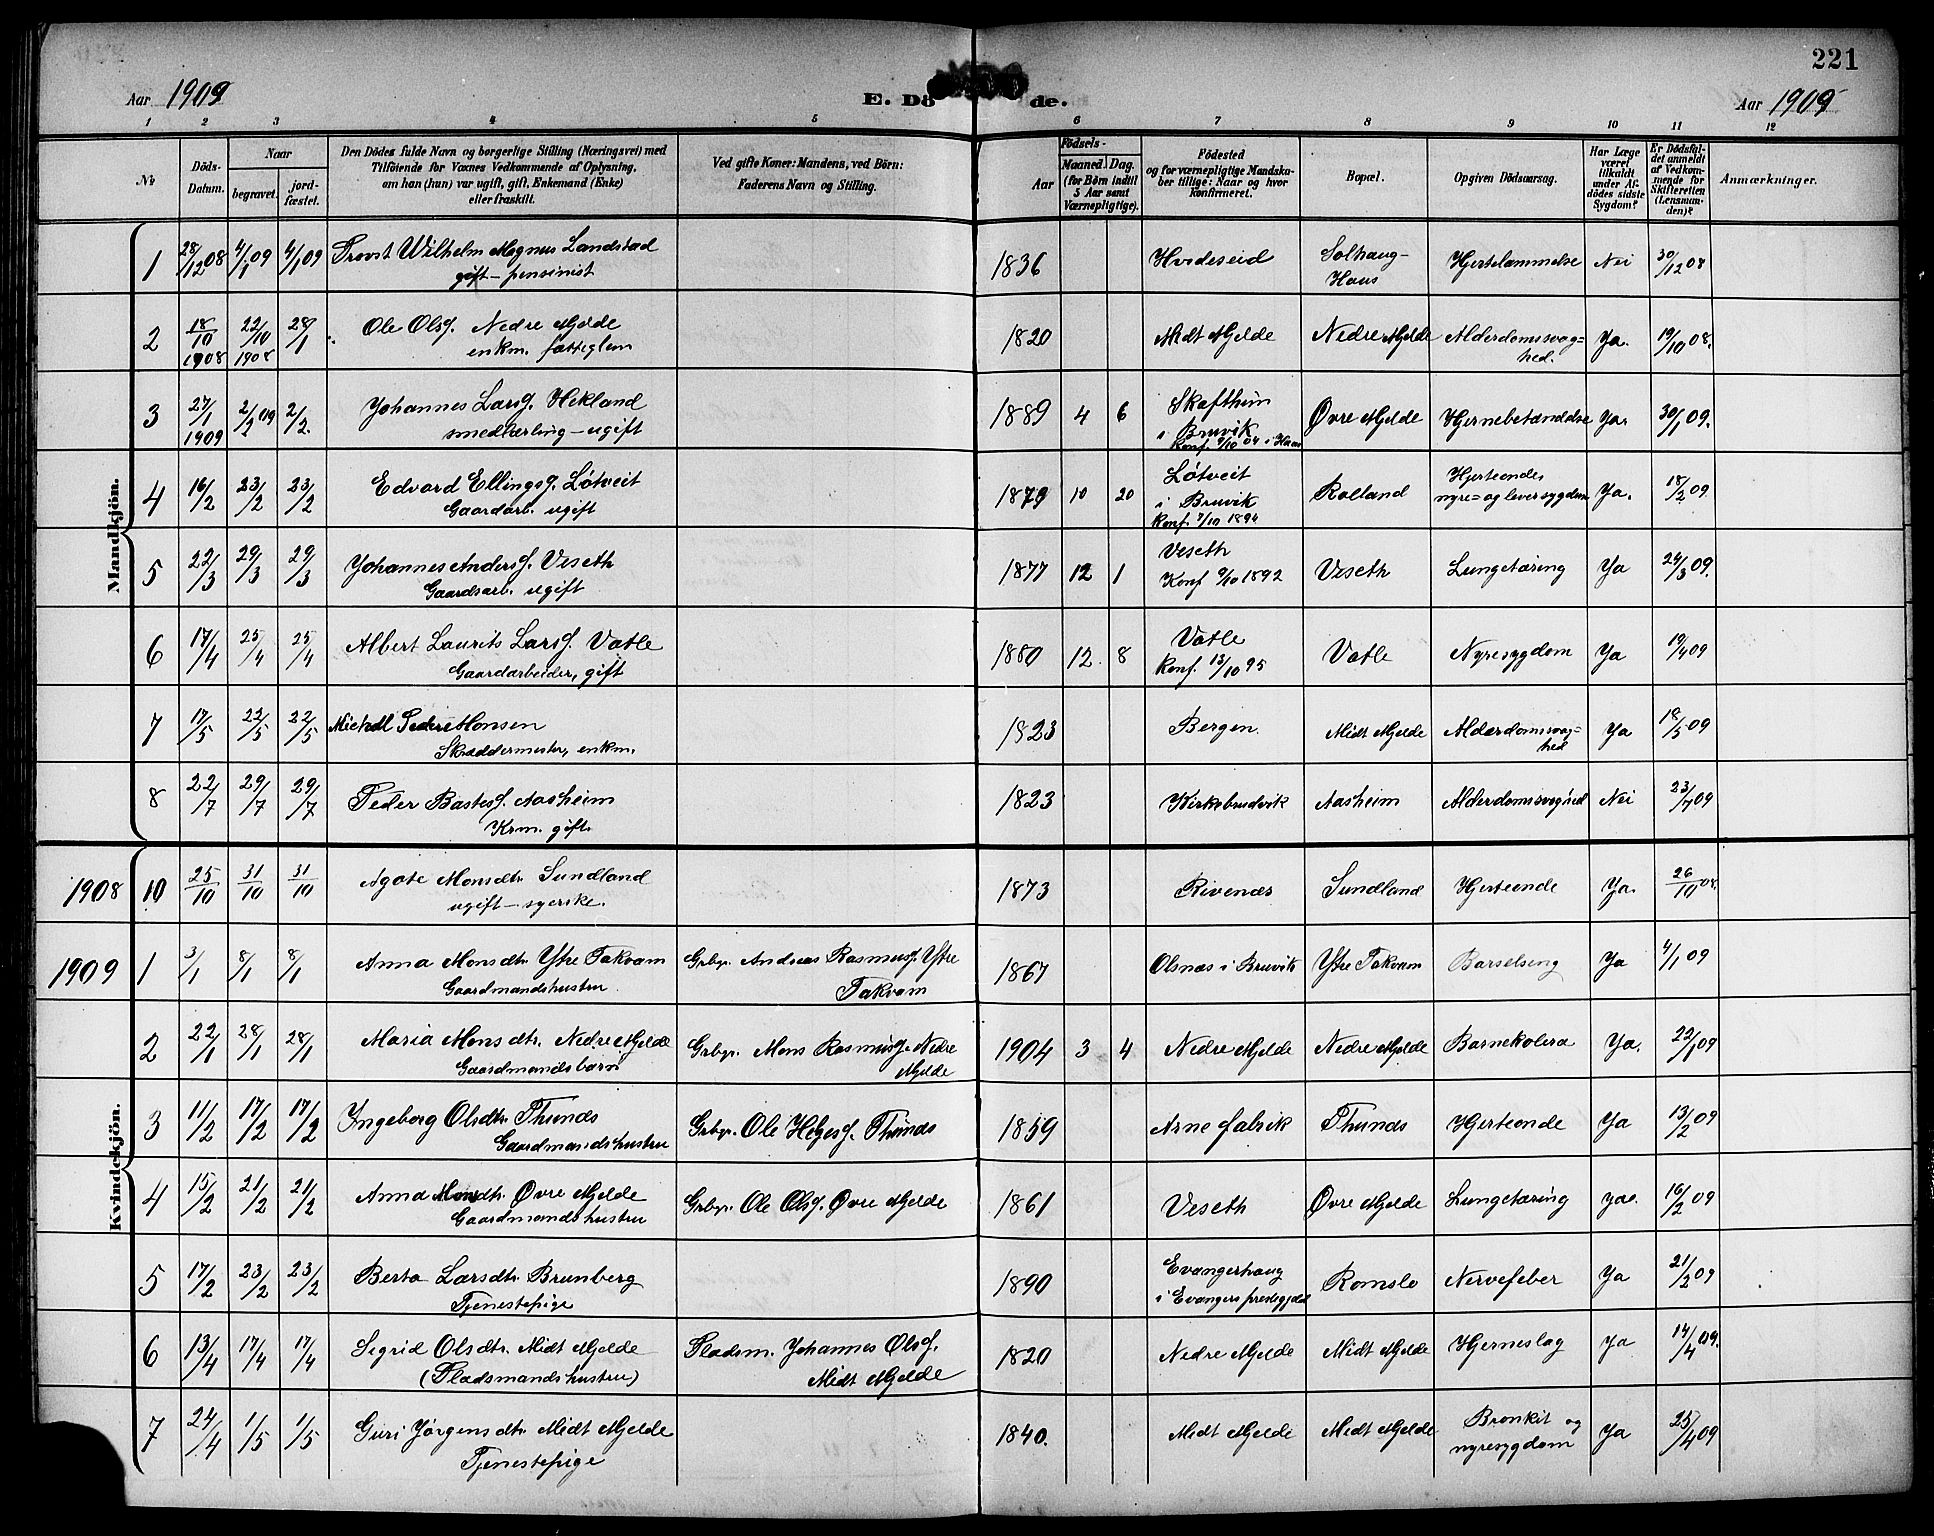 221
Aar 1909 E. Dö de. Aar 1909
1 2 3 4 5 6 7 8 9 10 11 12
No.
Döds-Datum.
Naar
begravet.
jordfæstet.
Den Dödes fulde Navn og borgerlige Stilling (Næringsvei) med
Tilföiende for Voxnes Vedkommende af Oplysning,
om han (hun) var ugift, gift, Enkemand (Enke)
eller fraskilt.
Ved gifte Koner: Mandens, ved Börn:
Faderens Navn og Stilling.
Födsels-
Aar
Maaned. Dag.
(for Börn indtil
5 Aar samt
Værnepligtige).
Födested
og for værnepligtige Mandskaber tillige: Naar og hvor
konfirmeret.
Bopæl.
Opgiven Dödsaarsag.
Har Læge
været
tilkaldt
under Afdödes sidste
Sygdom?
Er Dödsfaldet anmeldt
af Vedkommende for
Skifteretten
(Lensmanden)?
Anmærkninger.
Mandkjön.
1 28/12 08 4/1 09 4/1 09 Provst Wilhelm Magnus Landstad 1836 Hvideseid Solhaug- Hjertelammelse Nei 30/12 08
gift - pensionist Haus
2 18/10 1908 22/10 1908 28/1 Ole Olsf. Nedre Mjelde 1820 Midt Mjelde Nedre Mjelde Alderdomssvag= Ja. 19/10 08.
enkm. fattiglem hed.
3 27/1 1909 2/2 09 2/2. Johannes Larsf. Hekland 1889 4 6 Skafthun Øvre Mjelde Hjernebetændelse Ja. 30/1 09.
smedlærling - ugift i Bruvik
Konf. 9/10 04 i Haus
4 16/2 23/2 23/2 Edvard Ellingsf. Løtveit 1879 10 20 Løtveit Rolland Hjerteondes Ja. 18/2 09
Gaardarb. ugift i Bruvik nyre= og leversygdom
Konf. 7/10 1894
5 22/3 29/3 29/3 Johannes Andersf. Veseth 1877 12 1 Veseth Veseth Lungetæring Ja 24/3 09.
Gaardsarb. ugift Konf 9/10 1892
6 17/4 25/4 25/4 Albert Laurits Larsf. Vatle 1880 12. 8 Vatle Vatle Nyresygdom Ja 19/4 09
Gaardarbeider, gift Konf. 13/10 95
7 17/5 22/5 22/5 Michal Peder Monsen 1823 Bergen. Midt Mjelde Alderdomssvag= Ja 18/5 09
Skræddermester, enkm. hed
8 22/7 29/7 29/7 Peder Bastesf. Aasheim 1823 Kirkebrudvik Aasheim Alderdomssvaghed Nei 23/7 09
Krm. gift.
Kvindekjön.
1908 10 25/10 31/10 31/10 Agate Monsdtr. Sundland 1873 Rivenæs Sundland Hjerteonde Ja. 26/10 08.
ugift - syerske.
1909 1 3/1 8/1 8/1 Anna Monsdtr Ytre Takvam Grbgr. Andreas Rasmusf. Ytre 1867 Olsnæs i Bruvik Ytre Takvam Barselseng Ja 4/1 09
Gaardmandshustru. Takvam
2 22/1 28/1 28/1 Maria Monsdtr. Nedre Mjelde Grbgr. Mons Rasmusf. Nedre 1904 3 4 Nedre Mjelde Nedre Mjelde Barnekolera Ja. 22/1 09
Gaardmandsbarn Mjelde
3 11/2 17/2 17/2 Ingeborg Olsdtr. Thunds Grbgr. Ole Helgesf. Thunds 1859 Arne fabrik Thunds Hjerteonde Ja 13/2 09
Gaardmandshustru
4 15/2 21/2 21/2 Anna Monsdtr. Øvre Mjelde Grbgr. Ole Olsf. Øvre Mjelde 1861 Veseth Øvre Mjelde Lungetæring Ja. 16/2 09
Gaardmandshustru
5 17/2 23/2 23/2 Berta Larsdtr. Brunberg 1890 Evangerhaug Romslo Nervefeber Ja 21/2 09
Tjenestepige i Evangers prestegjeld
6 13/4 17/4 17/4 Sigrid Olsdtr. Midt Mjelde Pladsm. Johannes Olsf. 1820 Nedre Mjelde Midt Mjelde Hjerneslag Ja 14/4 09.
(Pladsmandshustru) Midt Mjelde
7 24/4 1/5 1/5 Guri Jørgensdtr. Midt Mjelde 1840. Midt Mjelde Midt Mjelde Bronkit og Ja 25/4 09
Tjenestepige nyresygdom